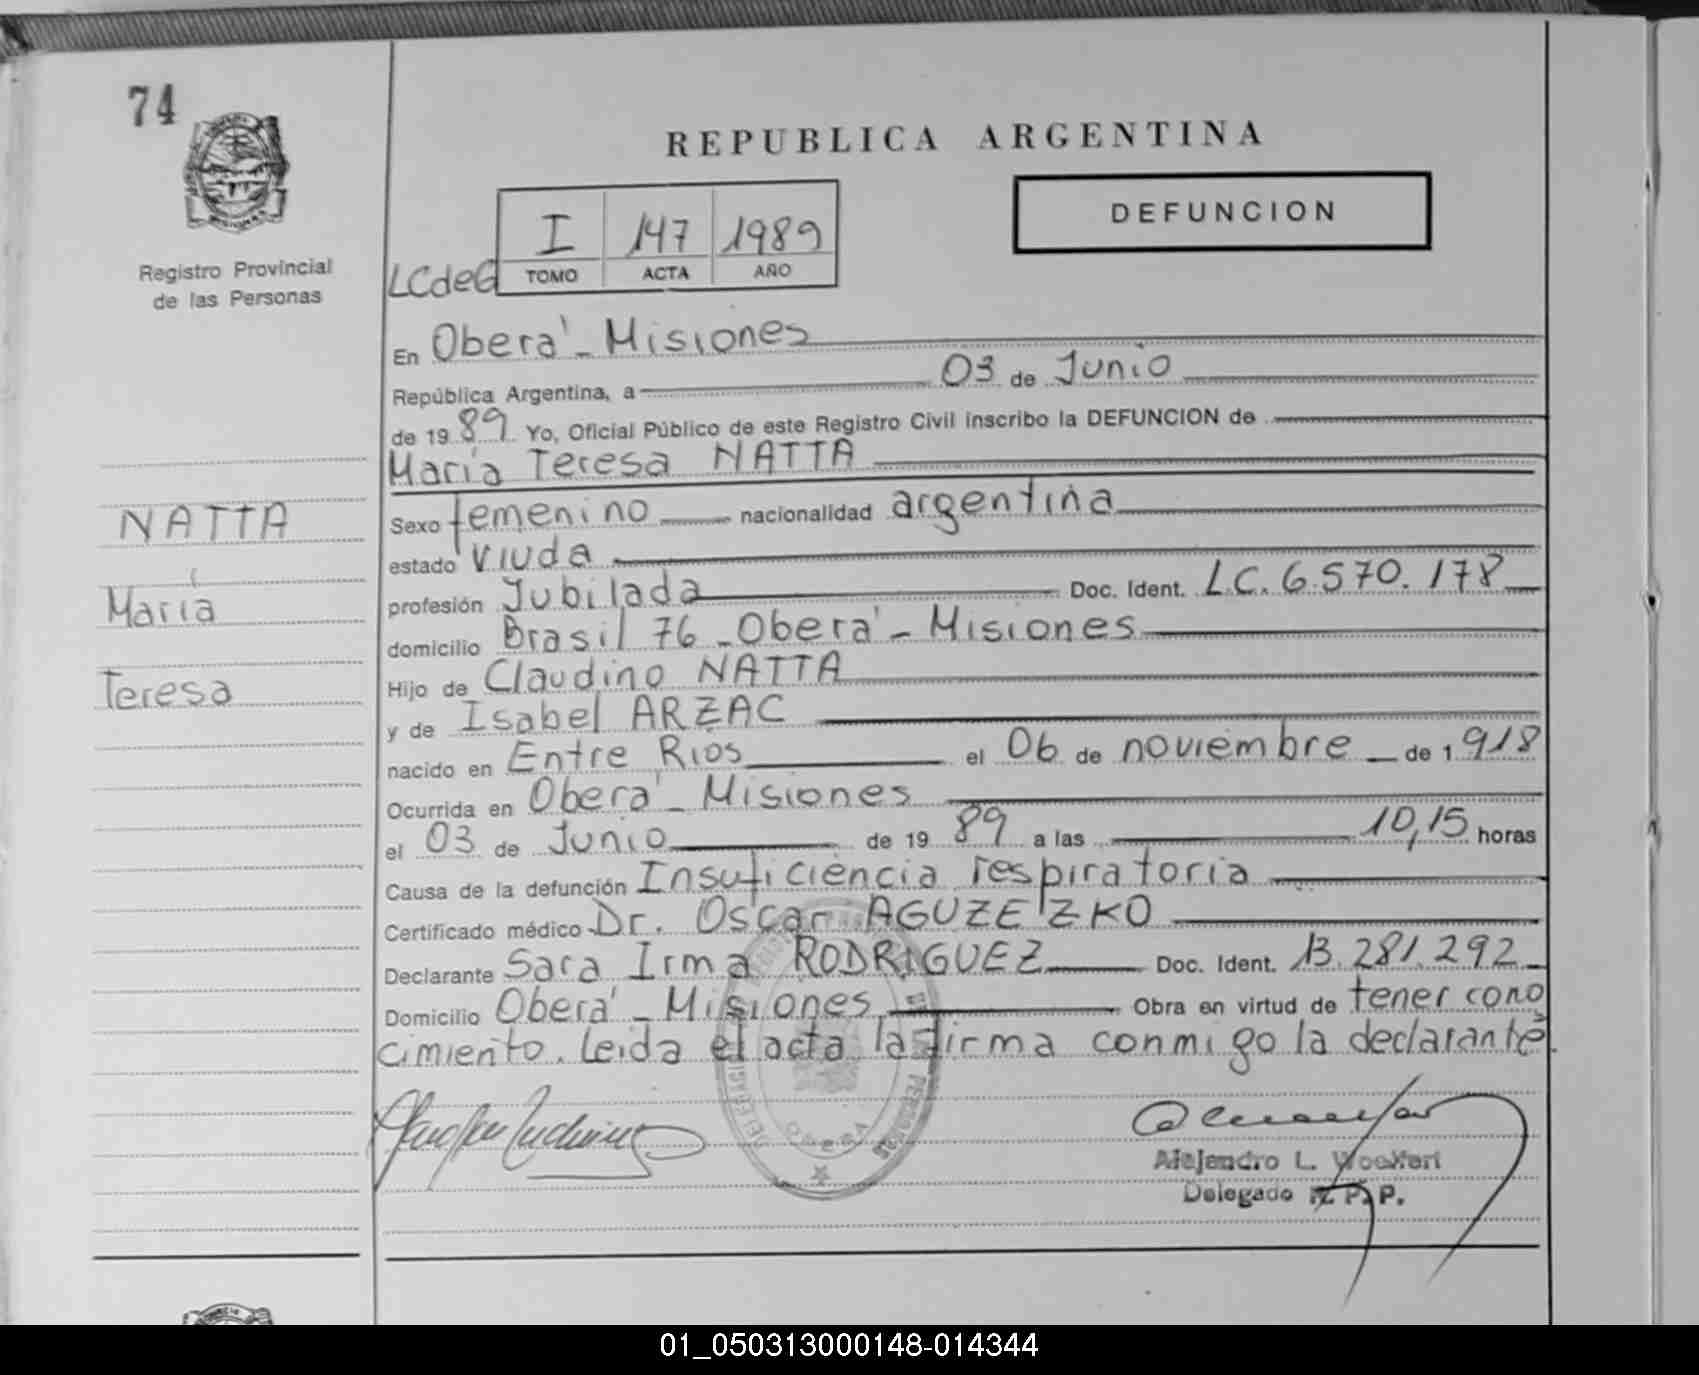 74
REPUBLICA ARGENTINA
I 147 1989
TOMO ACTA AÑO
DEFUNCION
LCdeG
Registro Provincial
de las Personas
En Oberá - Misiones
República Argentina, a 03 de Junio
de 19 89 Yo, Oficial Público de este Registro Civil inscribo la DEFUNCION de
María Teresa NATTA
NATTA
María
Teresa
Sexo femenino nacionalidad argentina
estado Viuda
profesión Jubilada Doc. Ident. LC. 6.570.178
domicilio Brasil 76 - Oberá - Misiones
Hijo de Claudino NATTA
y de Isabel ARZAC
nacido en Entre Rios el 06 de noviembre de 1 918
Ocurrida en Oberá - Misiones
el 03 de Junio de 19 89 a las 10,15 horas
Causa de la defunción Insuficiencia respiratoria
Certificado médico Dr. Oscar AGUZEZKO
Declarante Sara Irma RODRIGUEZ Doc. Ident. 13.281.292
Domicilio Oberá - Misiones Obra en virtud de tener cono
cimiento. Leida el acta la firma conmigo la declarante.
OBERA
Alejandro L. Woelfert
Delegado R. P. P.
01_050313000148-014344